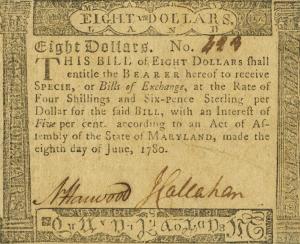 EIGHT DOLLARS.
LAND
Eight Dollars. No. 423
THIS BILL of EIGHT DOLLARS ſhall
entitle the BEARER hereof to receive
SPECIE, or Bills of Exchange, at the Rate of
Four Shillings and Six-pence Sterling per
Dollar for the ſaid BILL, with an Intereſt of
Five per cent. according to an Act of Aſ-
ſembly of the State of MARYLAND, made the
eighth day of June, 1780.
Harwood J Callahan